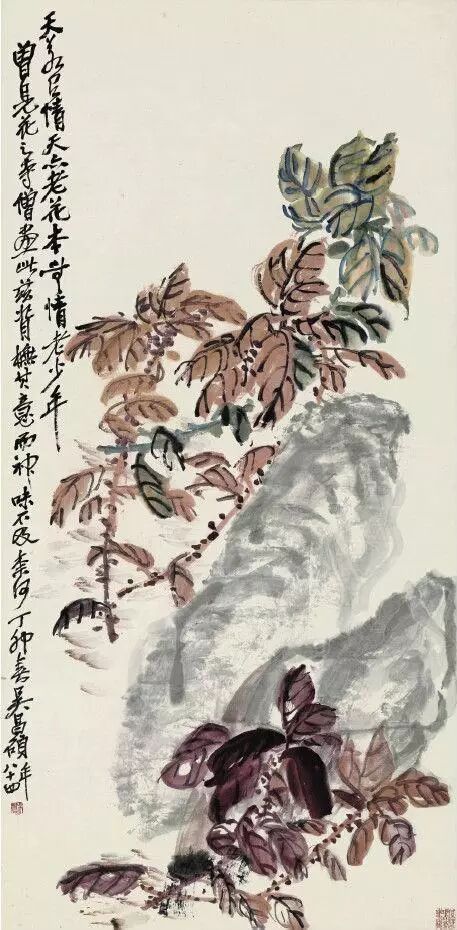 天若有情天亦老花本無情老少年
曾見花之寺僧畫此茲背橅其意而神味不及奈何丁卯春吳昌碩年八十四